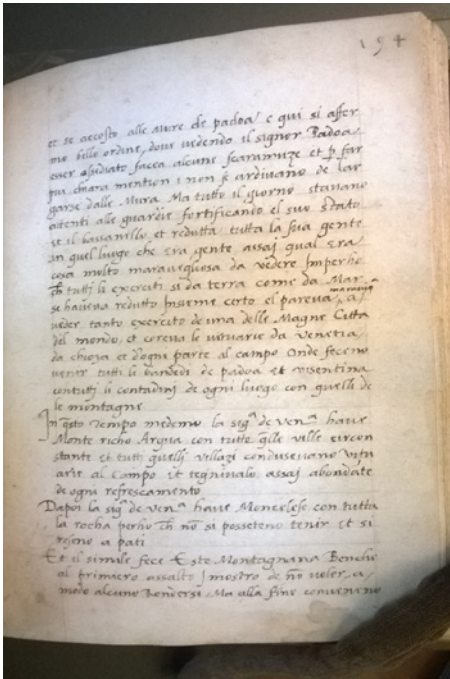 194
et se accosto alle mure de padoa e qui si affer
mo bello ordine, dove vedendo il signor Padoa
esser facea alcune scaramuze et p far
piu chiara mention non se ardivano de lar
garse dalle Mura Ma tutto il giorno stavano
atenti alle guardie fortificando el suo stato
et il bassanello et redutta tutta la sua gente
in quel luogo che era gente assai qual era
cosa molto maravegliosa da vedere Imperho
ch tutti li exerciti si da terra come da Mar
se haveva redutto Insieme certo el pareva maraviglia a
veder tanto exercito de una delle Magne Citta
del mondo, et coreva le vituarie da Venetia
da chioza et d'ogni parte al campo Onde feceno
venir tutti li bandedi de padoa et visentina
con tutti li contadini de ogni luogo con quelli de
le montagne
In qsto Tempo medemo la sigа de venа have
Monte richo Arqua con tutte qlle ville circon
stante et tutti quelli villazi condusevano vitu
arie al Campo et tegnivalo assai abondate
de ogni refrescamento
Dapoi la sigа de venа have Moncelese con tutta
la rocha perho ch nō si posseteno tenir et si
reseno a pati
Et il simile fece Este Montagnana Benche
al primiero assalto mostro de nō voler, a
modo alcuno Rendersi, Ma alla fine conveneno